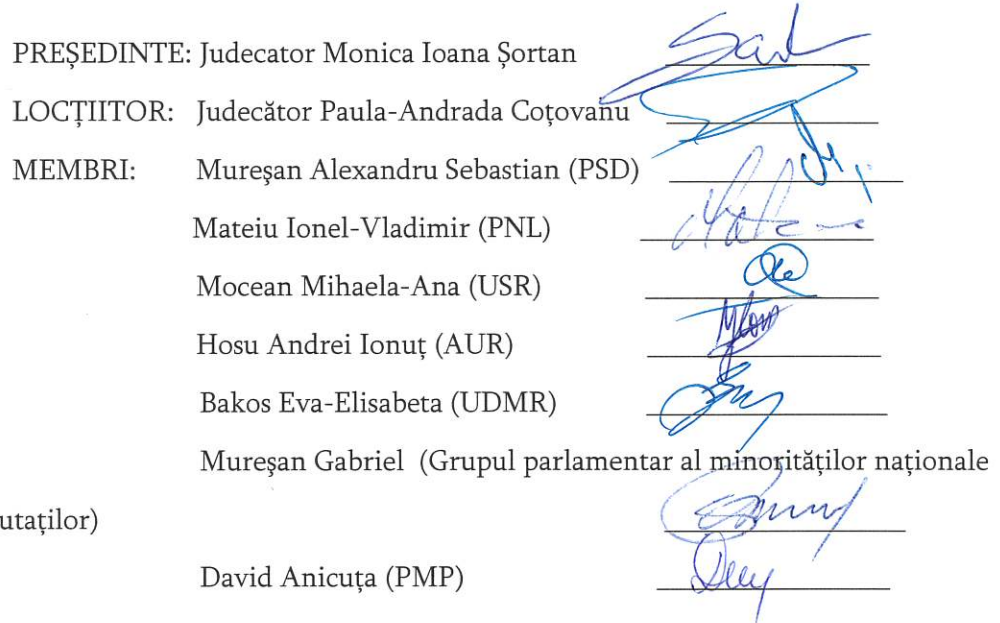 PREȘEDINTE: Judecator Monica Ioana Șortan
LOCȚIITOR: Judecător Paula-Andrada Coțovanu
MEMBRI: Mureşan Alexandru Sebastian (PSD)
Mateiu Ionel-Vladimir (PNL)
Mocean Mihaela-Ana (USR)
Hosu Andrei Ionuț (AUR)
Bakos Eva-Elisabeta (UDMR)
Mureşan Gabriel (Grupul parlamentar al minorităților naționale
utaților)
David Anicuța (PMP)